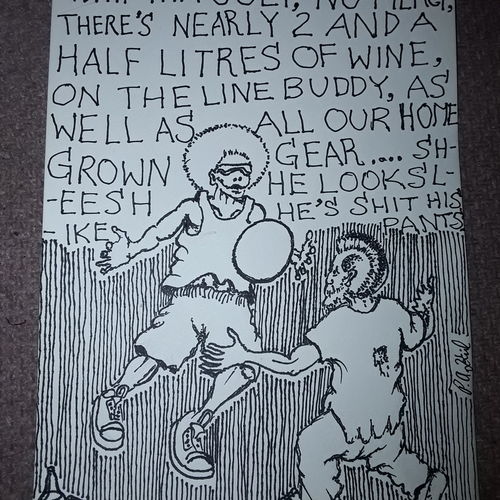 THERE'S NEARLY 2 AND A
HALF LITRES OF WINE,
ON THE LINE BUDDY, AS
WELL AS ALL OUR HOME
GROWN GEAR.... SH-
-EESH HE LOOKS L-
-IKE HE'S SHIT HIS
PANTS